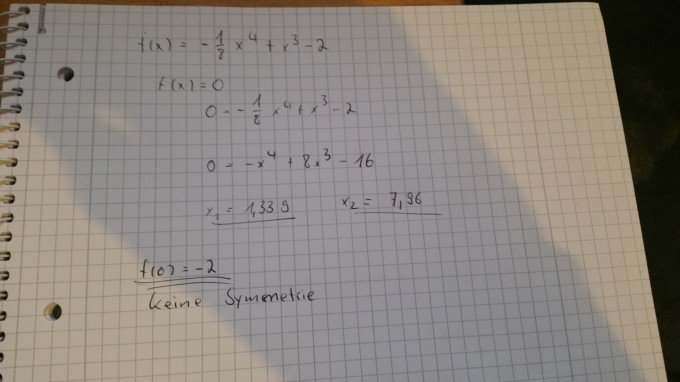 f(x) = -1/8 x⁴ + x³ - 2
f(x) = 0
0 = -1/8 x⁴ + x³ - 2
0 = -x⁴ + 8x³ - 16
x₁ = 1,339 x₂ = 7,96
f(0) = -2
Keine Symmetrie